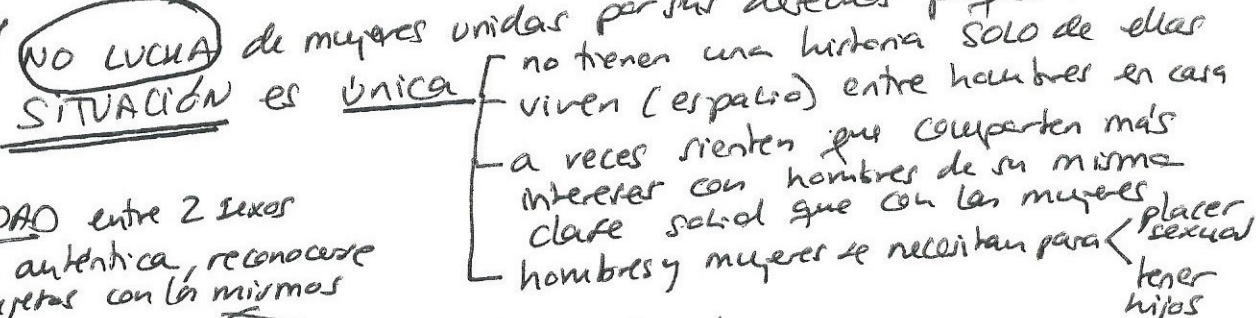 NO LUCHA de mujeres unidas por sus
SITUACIÓN es única
no tienen una historia SOLO de ellas
viven (espacio) entre hombres en casa
a veces sienten que comparten más
intereses con hombres de su misma
clase social que con las mujeres
hombres y mujeres se necesitan para
placer
sexual
tener
hijos
entre 2 sexos
auténtica, reconocerse
con los mismos